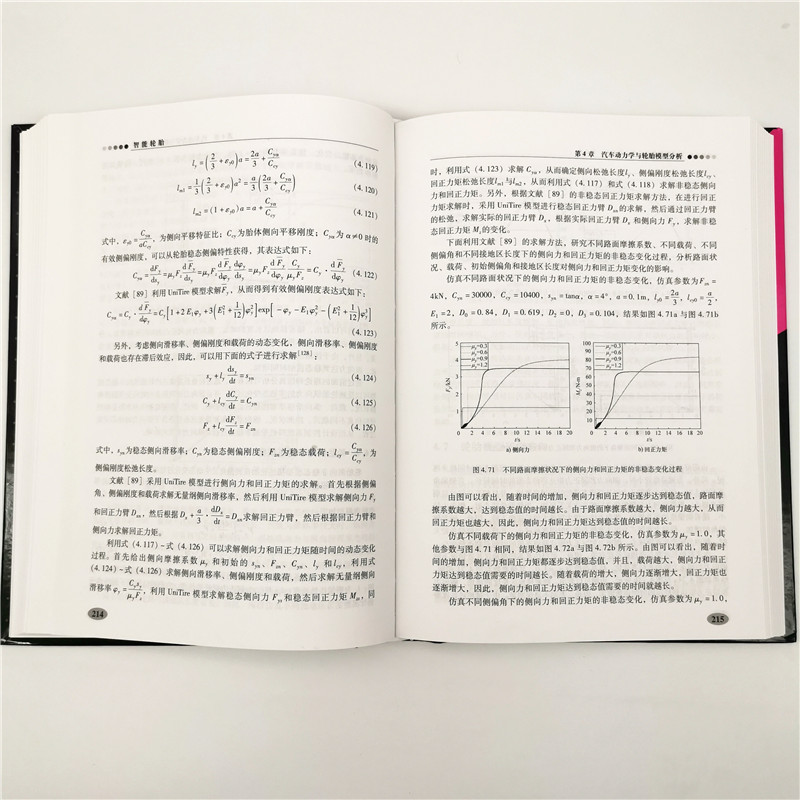 智能轮胎
l_y = (2/3 + ε_y0) a = 2a/3 + C_yα/C_cy (4.119)
l_m1 = 1/3 (2/3 + ε_y0) a² = a/3 (2a/3 + C_yα/C_cy) (4.120)
l_m2 = (1 + ε_y0) a = a + C_yα/C_cy (4.121)
式中,ε_y0 = C_yα/(aC_cy),为侧向平移特征比;C_cy为胎体侧向平移刚度;C_yα为 α≠0 时的
有效侧偏刚度,可以从轮胎稳态侧偏特性获得,其表达式如下:
(4.122)
文献 [89] 利用 UniTire 模型求解F̄_y,从而得到有效侧偏刚度表达式如下:
C_yα = C_y · dF̄_y/dφ_y = C_y [1 + 2E₁φ_y + 3(E₁² + 1/12)φ_y²] exp[-φ_y - E₁φ_y² - (E₁² + 1/12)φ_y³]
(4.123)
另外,考虑侧向滑移率、侧偏刚度和载荷的动态变化,侧向滑移率、侧偏刚度
和载荷也存在滞后效应,因此,可以用下面的式子进行求解[128]:
s_y + l_y ds_y/dt = s_yn (4.124)
C_y + l_cy dC_y/dt = C_yn (4.125)
F_z + l_cy dF_z/dt = F_zn (4.126)
式中,s_yn为稳态侧向滑移率;C_yn为稳态侧偏刚度;F_zn为稳态载荷;l_cy = C_yα/C_cy,为
侧偏刚度松弛长度。
文献 [89] 采用 UniTire 模型进行侧向力和回正力矩的求解。首先根据侧偏
角、侧偏刚度和载荷求解无量纲侧向滑移率,然后利用 UniTire 模型求解侧向力 F_y
和回正力臂 D_xn,然后根据 D_x + a/3 · dD_x/dt = D_xn求解回正力臂,然后根据回正力臂和
侧向力求解回正力矩。
利用式 (4.117)~式 (4.126) 可以求解侧向力和回正力矩随时间的动态变化
过程。首先给出侧向摩擦系数 μ_y 和初始的 s_yn、F_zn、C_yn、l_y 和 l_cy,利用式
(4.124)~式 (4.126) 求解侧向滑移率、侧偏刚度和载荷,然后求解无量纲侧向
滑移率 φ_y = C_y s_y/(μ_y F_z),利用 UniTire 模型求解稳态侧向力 F_ys 和稳态回正力矩 M_zs,同
214
第 4 章 汽车动力学与轮胎模型分析
时,利用式 (4.123) 求解 C_yα,从而确定侧向松弛长度l_y、侧偏刚度松弛长度l_cy、
回正力矩松弛长度l_m1与l_m2,从而利用式 (4.117) 和式 (4.118) 求解非稳态侧向
力和回正力矩。另外,根据文献 [89] 的非稳态回正力矩求解方法,在进行回正
力矩求解时,采用 UniTire 模型进行稳态回正力臂 D_xn的求解,然后通过回正力臂
的松弛,求解实际的回正力臂 D_x,根据实际回正力臂 D_x 和侧向力 F_y,求解非稳
态回正力矩 M_z的变化。
下面利用文献 [89] 的求解方法,研究不同路面摩擦系数、不同载荷、不同
侧偏角和不同接地区长度下的侧向力和回正力矩的非稳态变化过程,分析路面状
况、载荷、初始侧偏角和接地区长度对侧向力和回正力矩变化的影响。
仿真不同路面状况下的侧向力和回正力矩的非稳态变化,仿真参数为F_zn =
4kN,C_yn = 30000,C_cy = 10400,s_yn = tanα,α = 4°,a = 0.1m,l_y0 = 2a/3,l_cy0 = a/2,
E₁ = 2,D₀ = 0.84,D₁ = 0.619,D₂ = 0,D₃ = 0.104,结果如图 4.71a 与图 4.71b
所示。
5 4 3 2 1
F_y/kN
μ_y=0.3
μ_y=0.6
μ_y=0.9
μ_y=1.2
0 2 4 6 8 10 12 14 16 18 20
t/s
a) 侧向力
100 90 80 70 60 50 40 30 20 10
M_z/N·m
μ_y=0.3
μ_y=0.6
μ_y=0.9
μ_y=1.2
0 2 4 6 8 10 12 14 16 18 20
t/s
b) 回正力矩
图 4.71 不同路面摩擦状况下的侧向力和回正力矩的非稳态变化过程
由图可以看出,随着时间的增加,侧向力和回正力矩逐步达到稳态值,路面摩
擦系数越大,达到稳态值的时间越长。由于路面摩擦系数越大,侧向力越大,从而
回正力矩也越大,因此,侧向力和回正力矩达到稳态值的时间越长。
仿真不同载荷下的侧向力和回正力矩的非稳态变化,仿真参数为 μ_y = 1.0,其
他参数与图 4.71 相同,结果如图 4.72a 与图 4.72b 所示。由图可以看出,随着时
间的增加,侧向力和回正力矩都逐步达到稳态值,并且,载荷越大,侧向力和回正
力矩达到稳态值需要的时间越长。随着载荷的增大,侧向力逐渐增大,回正力矩也
逐渐增大,因此,侧向力和回正力矩达到稳态值需要的时间就越长。
仿真不同侧偏角下的侧向力和回正力矩的非稳态变化,仿真参数为 μ_y = 1.0,
215